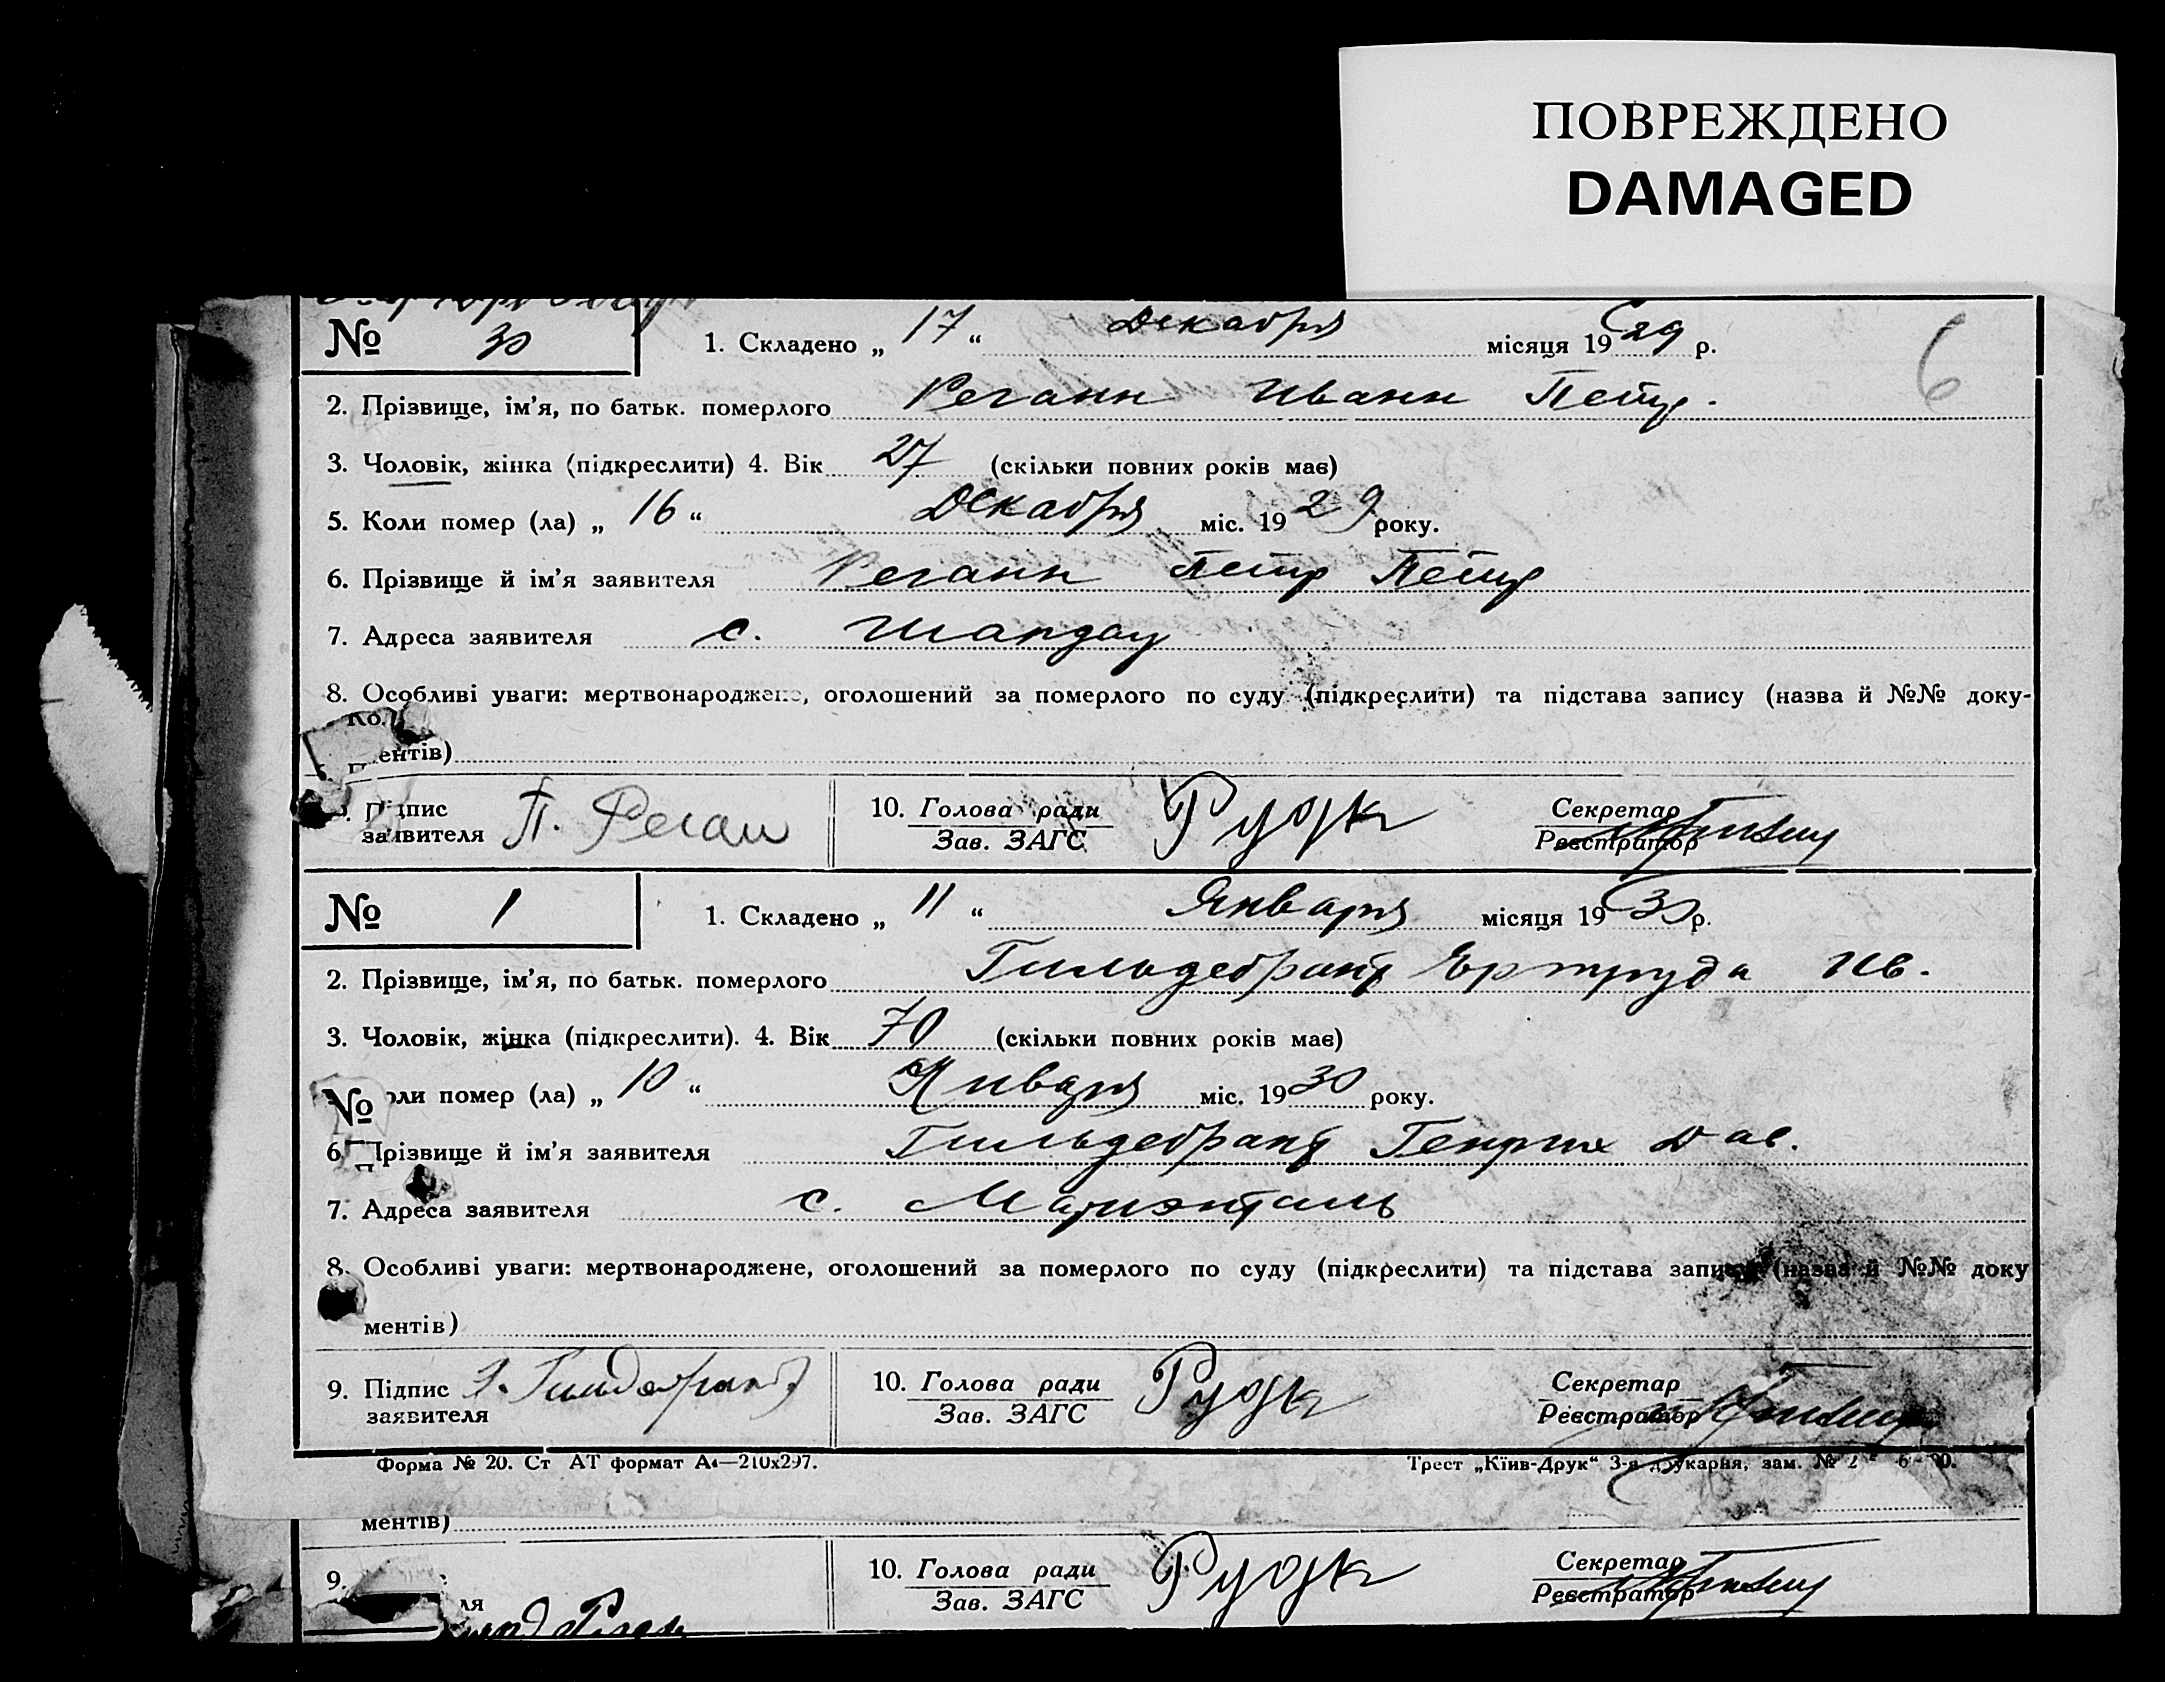 ПОВРЕЖДЕНО
DAMAGED
6
№ 30 1. Складено „ 17 “ Декабря місяця 1929 р.
2. Прізвище, ім’я, по батьк. померлого Реганн Иванн Петр.
3. Чоловік, жінка (підкреслити) 4. Вік 27 (скільки повних років має)
5. Коли помер (ла) „ 16 “ Декабря міс. 1929 року.
6. Прізвище й ім’я заявителя Реганн Петр Петр
7. Адреса заявителя с. Шандау
8. Особливі уваги: мертвонароджене, оголошений за померлого по суду (підкреслити) та підстава запису (назва й №№ доку-
ментів)
Підпис заявителя П. Реган 10. Голова ради Зав. ЗАГС Секретар Реєстратор
№ 1 1. Складено „ 11 “ Января місяця 1930 р.
2. Прізвище, ім’я, по батьк. померлого Гильдебрант Ертруда Ив.
3. Чоловік, жінка (підкреслити). 4. Вік 70 (скільки повних років має)
№ оли помер (ла) „ 10 “ Января міс. 1930 року.
6. Прізвище й ім’я заявителя Гильдебрант Генрих Дав.
7. Адреса заявителя с. Мариэнталь
8. Особливі уваги: мертвонароджене, оголошений за померлого по суду (підкреслити) та підстава запису (назва й №№ доку
ментів)
9. Підпис заявителя 10. Голова ради Зав. ЗАГС Секретар Реєстратор
Форма № 20. Ст АТ формат А4—210х297. Трест „Київ-Друк“ 3-я друкарня, зам. №
ментів)
9. ля 10. Голова ради Зав. ЗАГС Секретар Реєстратор